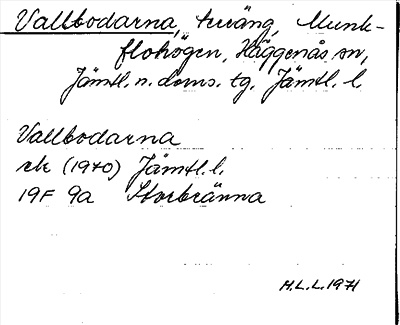 Vallbodarna, teräng, Munk-
flohögen, Häggenås sn,
Jämtl. n. doms. tg. Jämtl. l.
Vallbodarna
rek (1970) Jämtl. l.
19F 9a Storbränna
H.L.L. 1971